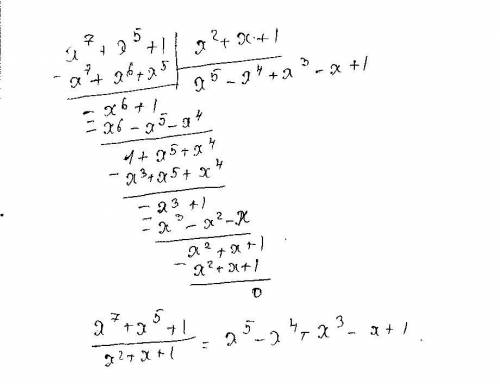 x⁷ + x⁵ + 1 | x² + x + 1
- x⁷ + x⁶ + x⁵ | x⁵ - x⁴ + x³ - x + 1
- x⁶ + 1
- x⁶ - x⁵ - x⁴
1 + x⁵ + x⁴
- x³ + x⁵ + x⁴
- x³ + 1
- x³ - x² - x
x² + x + 1
- x² + x + 1
0
(x⁷ + x⁵ + 1)/(x² + x + 1) = x⁵ - x⁴ + x³ - x + 1.